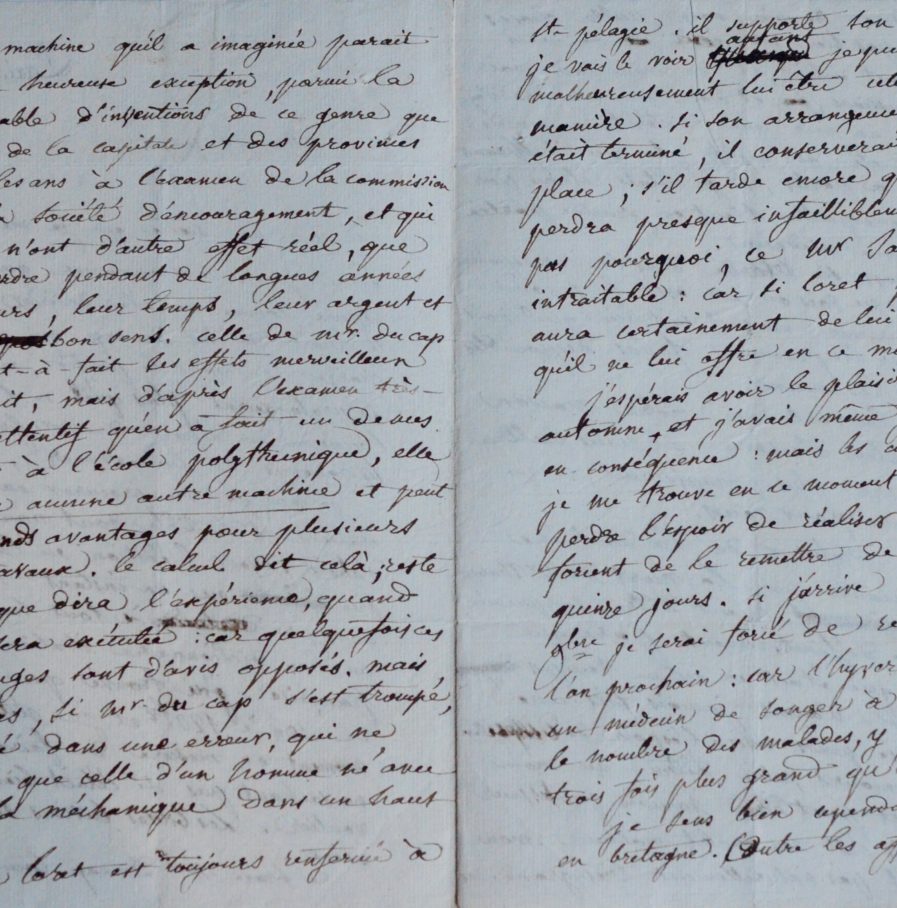 machine qu'il a imaginée parait
heureuse exception, parmi la
able d'inventions de ce genre que
de la capitale et des provinces
les ans à l'examen de la commission
société d'encouragement, et qui
n'ont d'autre effet réel, que
rdre pendant de longues années
urs, leur temps, leur argent et
bon sens. celle de mr. du cap
t-à-fait les effets merveilleux
it, mais d'après l'examen très-
attentif qu'en a fait un de mes
à l'école polythecnique, elle
aucune autre machine et peut
nds avantages pour plusieurs
avaux. le calcul dit celà, reste
que dira l'expérience, quand
sera exécutée : car quelquefois ces
uges sont d'avis opposés. mais
es, si mr. du cap s'est trompé,
é dans une erreur, qui ne
que celle d'un homme né avec
la méchanique dans un haut
loret est toujours renfermé à
ste pélagie. il supporte son
je vais le voir aussi je pu
malheureusement lui être util
manière. si son arrangeme
était terminé, il conserverai
place ; s'il tarde encore q
perdra presque infailliblem
pas pourquoi, ce mr Sa
intraitable : car si loret
aura certainement de lui
qu'il ne lui offre en ce mo
j'espérais avoir le plaisi
automne, et j'avais même
en conséquence : mais les
je me trouve en ce moment
perdre l'espoir de réaliser
forient de le remettre de
quinze jours. si j'arrive
gbre je serai forié de re
l'an prochain : car l'hyver
un médecin de songer à
le nombre des malades, y
trois fois plus grand qu'
je sens bien cepend
en bretagne. Outre les aff